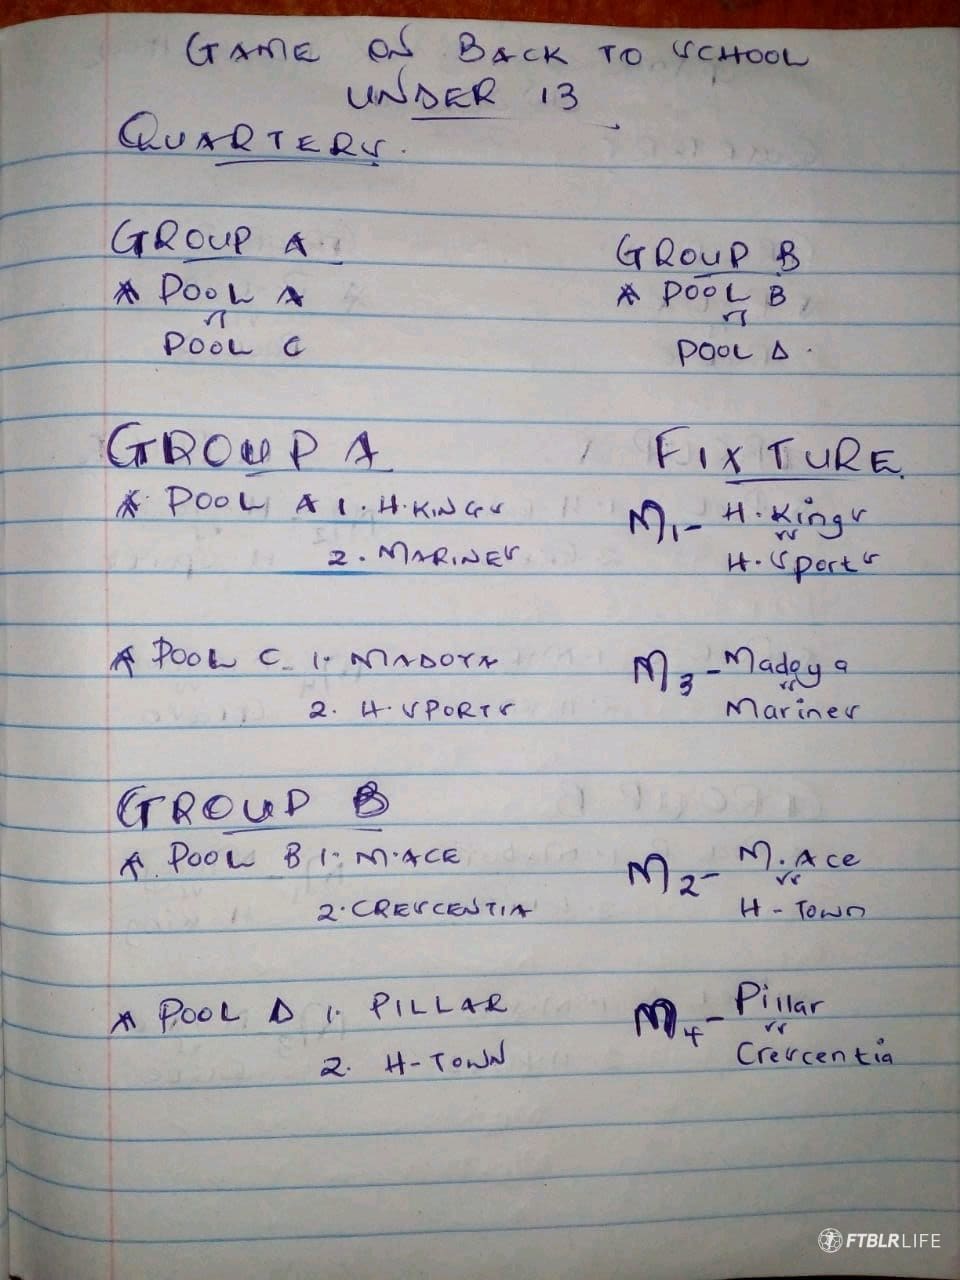 GAME ON BACK TO SCHOOL
UNDER 13
QUARTERS.
GROUP A.
* POOL A
vs
POOL C
GROUP B
* POOL B
vs
POOL D.
GROUP A
* POOL A 1. H.KINGS
2. MARINES
* POOL C 1. MADOYA
2. H.SPORTS
FIXTURE.
M1- H.Kings
vs
H.Sports
M3 - Madoya
vs
Marines
GROUP B
* POOL B 1. M.ACE
2. CRESCENTIA
* POOL D 1. PILLAR
2. H-TOWN
M2- M.Ace
vs
H-Town
M4- Pillar
vs
Crescentia
FTBLRLIFE